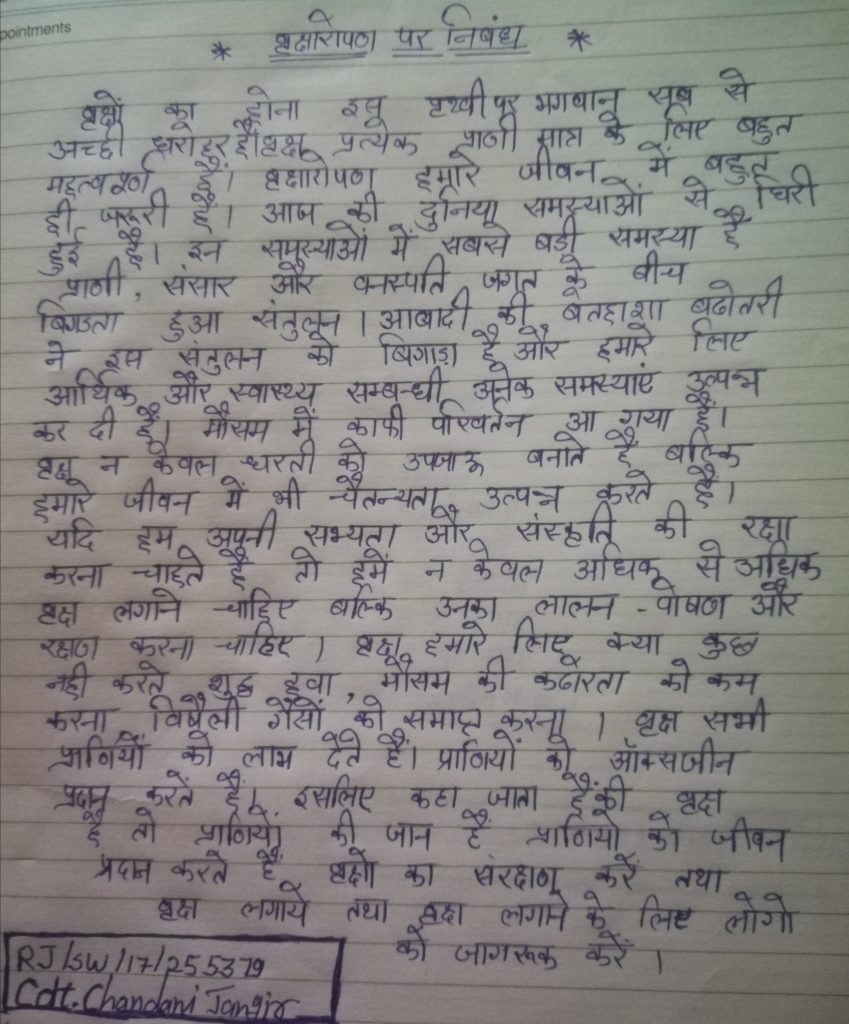 pointments
* वृक्षारोपण पर निबंध *
वृक्षों का होना इस पृथ्वी पर भगवान सब से
अच्छी धरोहर है। वृक्ष प्रत्येक प्राणी मात्र के लिए बहुत
महत्वपूर्ण है। वृक्षारोपण हमारे जीवन में बहुत
ही जरूरी है। आज की दुनिया समस्याओं से घिरी
हुई है। इन समस्याओं में सबसे बड़ी समस्या है
प्राणी, संसार और वनस्पति जगत के बीच
बिगडता हुआ संतुलन। आबादी की बेतहाशा बढोतरी
ने इस संतुलन को बिगाड़ा है और हमारे लिए
आर्थिक और स्वास्थ्य सम्बन्धी अनेक समस्याएं उत्पन्न
कर दी है। मौसम में काफी परिवर्तन आ गया हैं।
वृक्ष न केवल धरती को उपजाऊ बनाते हैं बल्कि
हमारे जीवन में भी चैतन्यता उत्पन्न करते हैं।
यदि हम अपनी सभ्यता और संस्कृति की रक्षा
करना चाहते हैं तो हमें न केवल अधिक से अधिक
वृक्ष लगाने चाहिए बल्कि उनका लालन - पोषण और
रक्षण करना चाहिए। वृक्ष हमारे लिए क्या कुछ
नही करते शुद्ध हवा, मौसम की कठोरता को कम
करना विषैली गैसों को समाप्त करना। वृक्ष सभी
प्राणियों को लाभ देते हैं। प्राणियों को ऑक्सजीन
प्रदान करतें हैं। इसलिए कहा जाता हैं की वृक्ष
है तो प्राणियों की जान है प्राणियो को जीवन
प्रदान करते हैं वृक्षो का संरक्षण करें तथा
वृक्ष लगाये तथा वृक्ष लगाने के लिए लोगो
को जागरूक करें।
RJ/SW/17/255379
Cdt. Chandani Jangir